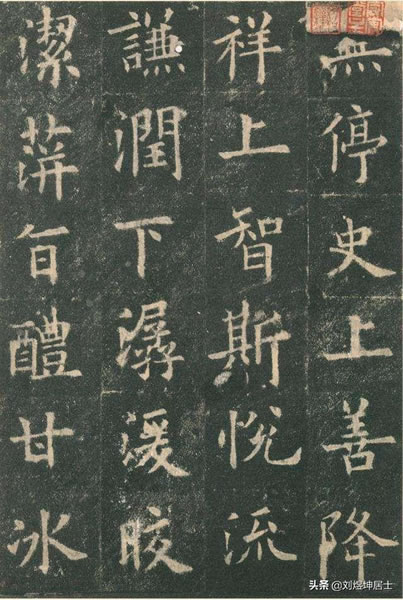 無停史上善降
祥上智斯悅流
謙潤下潺湲皎
潔蓱旨醴甘冰
头条 @刘煜坤居士